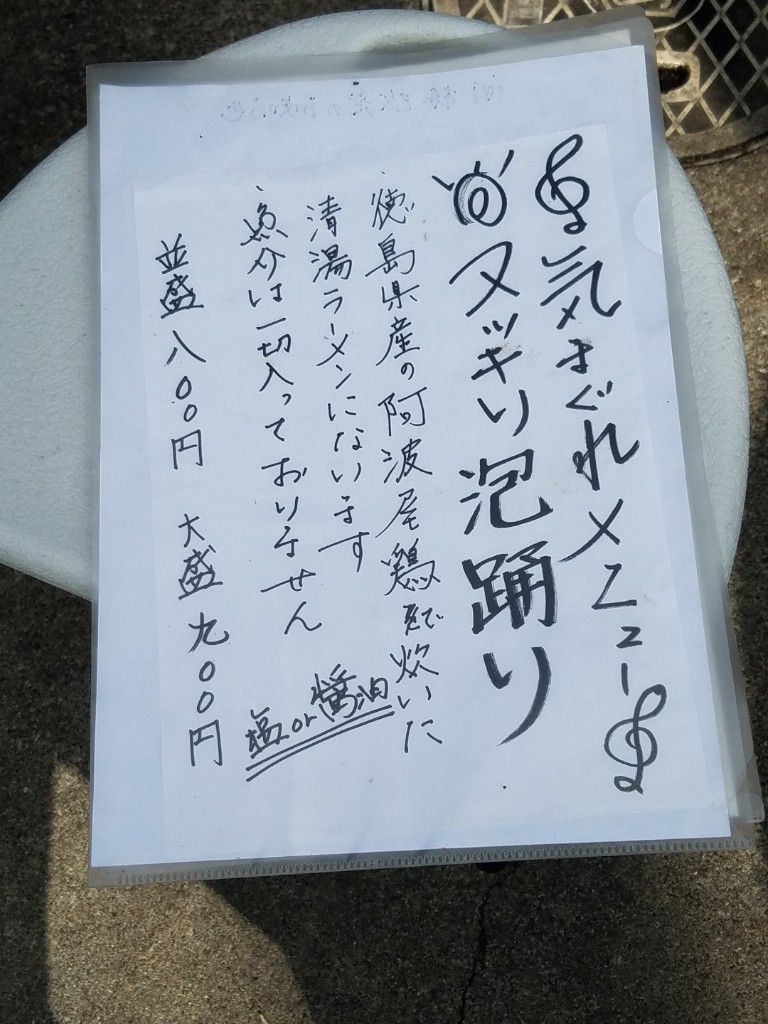 気まぐれメニュー
スッキリ泡踊り
・徳島県産の阿波尾鶏で炊いた
清湯ラーメンになります
・魚介は一切入っておりません
塩or醤油
並盛 八〇〇円 大盛 九〇〇円